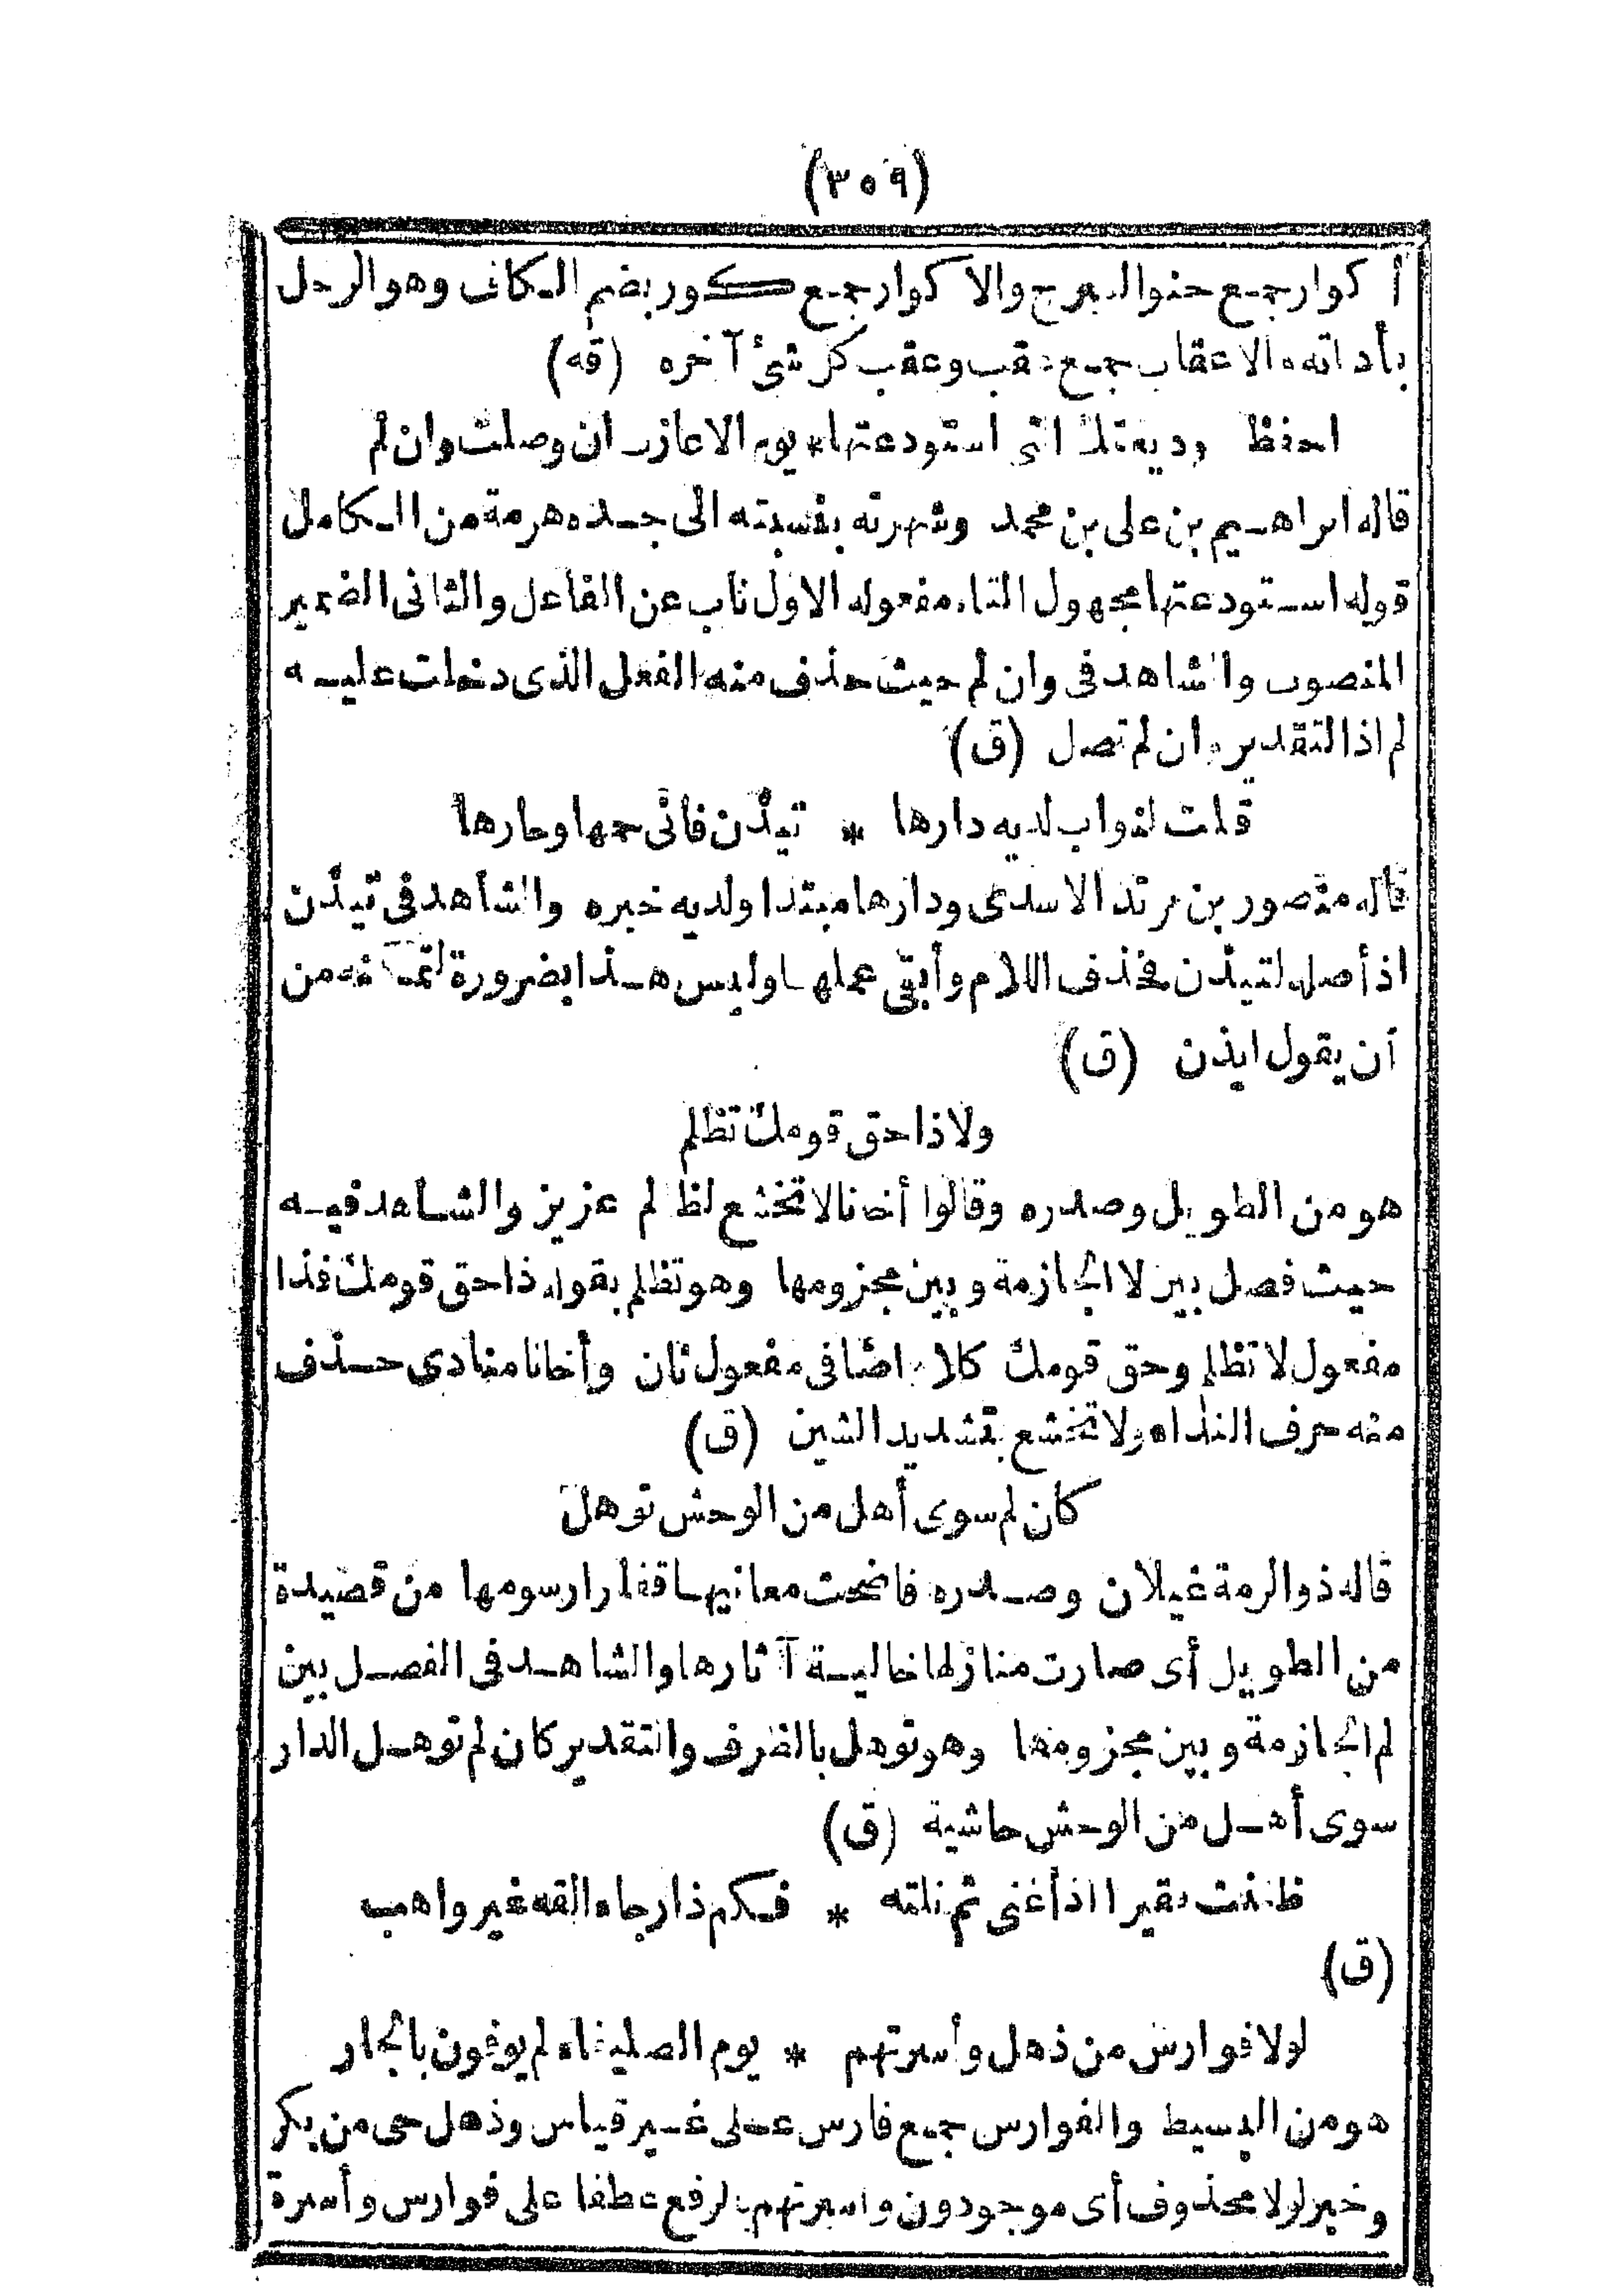 (٣٥٩)
أ كوار جمع حنو السرج والا كوار جمع كور بضم الكاف وهو الرحل
بأداته والاعقاب جمع عقب وعقب كل شئ آخره (قه)
احفظ وديعتك التى استودعتها * يوم الاعازب ان وصلت وان لم
قاله ابراهيم بن على بن محمد وشهرته بنسبته الى جده هرمة من الكامل
قوله استودعتها مجهول التاء مفعوله الاول ناب عن الفاعل والثانى الضمير
المنصوب والشاهد فى وان لم حيث حذف منه الفعل الذى دخلت عليه
لم اذ التقدير وان لم تصل (ق)
قلت لبواب لديه دارها * تيذن فانى حمها وجارها
قاله منصور بن مرثد الاسدى ودارها مبتدا ولديه خبره والشاهد فى تيذن
اذ أصله لتيذن فحذف اللام وأبقى عملها وليس هذا بضرورة لتمكنه من
أن يقول ايذن (ق)
ولا ذا حق قومك تظلم
هو من الطويل وصدره وقالوا أخانا لا تخشع لظالم عزيز والشاهد فيه
حيث فصل بين لا الجازمة وبين مجزومها وهو تظلم بقوله ذا حق قومك فذا
مفعول لا تظلم وحق قومك كلام اضافى مفعول ثان وأخانا منادى حذف
منه حرف النداء ولا تخشع بتشديد الشين (ق)
كان لم سوى أهل من الوحش توهل
قاله ذو الرمة غيلان وصدره فاضحت مغانيها قفارا رسومها من قصيدة
من الطويل أى صارت منازلها خالية آثارها والشاهد فى الفصل بين
لم الجازمة وبين مجزومها وهو توهل بالظرف والتقدير كان لم توهل الدار
سوى أهل من الوحش حاشية (ق)
ظننت فقيرا اذا غنى ثم نلته * فكم ذا رجاء القه غير واهب
(ق)
لولا فوارس من ذهل وأسرتهم * يوم الصليفاء لم يوفون بالجار
هو من البسيط والفوارس جمع فارس على غير قياس وذهل حى من بكر
وخبر لولا محذوف أى موجودون واسرتهم بالرفع عطفا على فوارس وأسرة